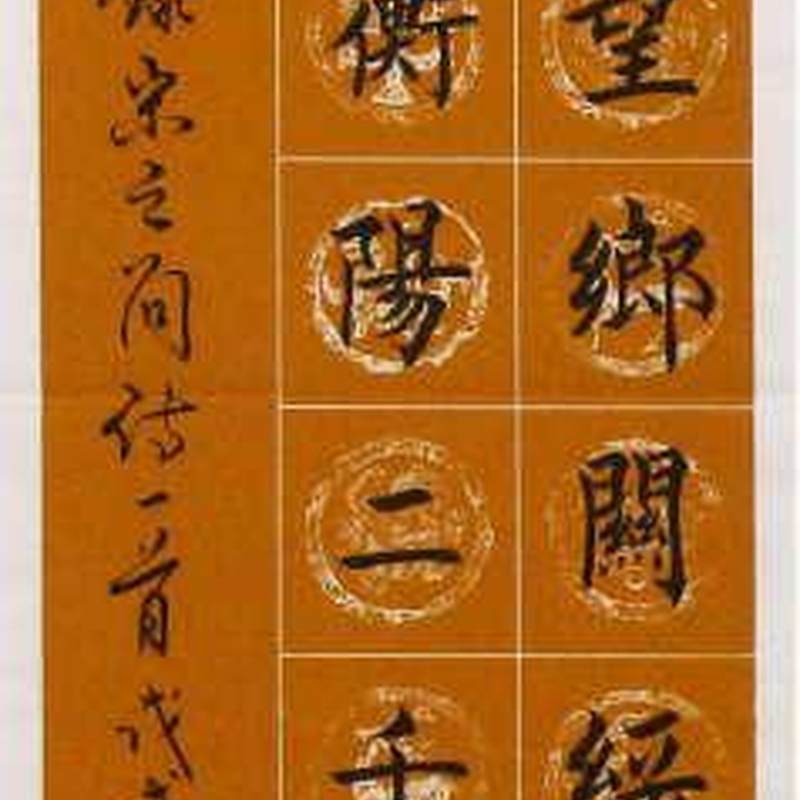 望鄉關綠
衡陽二千
宋之问诗一首戊